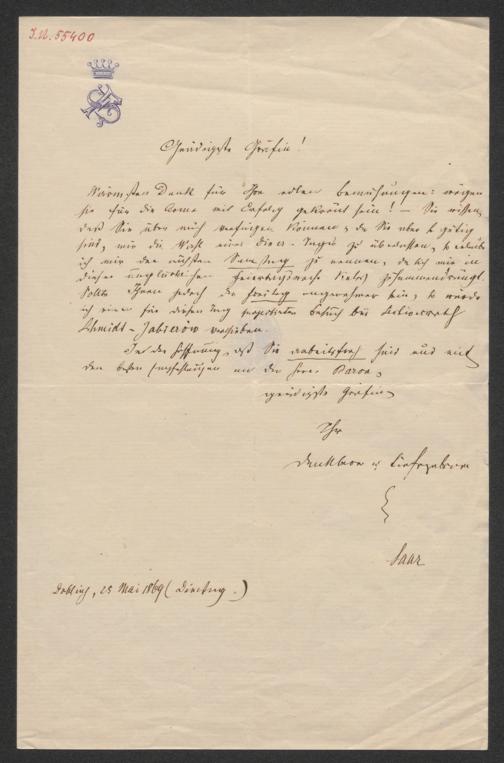 I.N. 55400
Gnädigste Gräfin!
Wärmsten Dank für Ihre edlen Bemühungen: mögen
sie für die Arme mit Erfolg gekrönt sein! — Sie wissen,
daß Sie über mich verfügen können, da Sie aber so gütig
sind, mir die Wahl eines Tages zu überlassen, so erlaube
ich mir den nächsten Samstag zu nennen, da sich mir in
dieser unglücklichen Feiertagswoche Vieles zusammendrängt.
Sollte Ihnen jedoch der Freitag angenehmer sein, so würde
ich einen für diesen Tag Besuch bei
Schmidt-Zabierow verschieben.
In der Hoffnung, daß Sie arbeitsfroh sind und mit
den besten Empfehlungen an den Herrn Baron,
gnädigste Gräfin
Ihr
dankbar u. tiefergebener
Saar
Döbling, 25 Mai 1869 (Dienstag.)